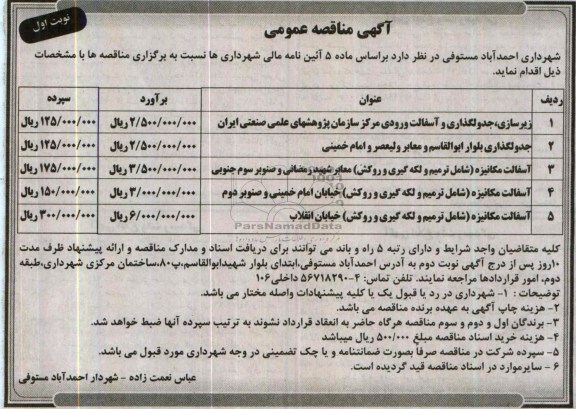 نوبت اول
آگهی مناقصه عمومی
شهرداری احمدآباد مستوفی در نظر دارد براساس ماده ۵ آئین نامه مالی شهرداری ها نسبت به برگزاری مناقصه ها با مشخصات
ذیل اقدام نماید.
ردیف عنوان برآورد سپرده
۱ زیرسازی،جدولگذاری و آسفالت ورودی مرکز سازمان پژوهشهای علمی صنعتی ایران ۲/۵۰۰/۰۰۰/۰۰۰ ریال ۱۲۵/۰۰۰/۰۰۰ ریال
۲ جدولگذاری بلوار ابوالقاسم و معابر ولیعصر و امام خمینی ۲/۵۰۰/۰۰۰/۰۰۰ ریال ۱۲۵/۰۰۰/۰۰۰ ریال
۳ آسفالت مکانیزه (شامل ترمیم و لکه گیری و روکش) معابر شهید رمضانی و صنوبر سوم جنوبی ۳/۵۰۰/۰۰۰/۰۰۰ ریال ۱۷۵/۰۰۰/۰۰۰ ریال
۴ آسفالت مکانیزه (شامل ترمیم و لکه گیری و روکش) خیابان امام خمینی و صنوبر دوم ۳/۰۰۰/۰۰۰/۰۰۰ ریال ۱۵۰/۰۰۰/۰۰۰ ریال
۵ آسفالت مکانیزه (شامل ترمیم و لکه گیری و روکش) خیابان انقلاب ۶/۰۰۰/۰۰۰/۰۰۰ ریال ۳۰۰/۰۰۰/۰۰۰ ریال
ParsNamadData
کلیه متقاضیان واجد شرایط و دارای رتبه ۵ راه و باند می توانند برای دریافت اسناد و مدارک مناقصه و ارائه پیشنهاد ظرف مدت
۱۰روز پس از درج آگهی نوبت دوم به آدرس احمدآباد مستوفی،ابتدای بلوار شهیدابوالقاسم،پ۸۰،ساختمان مرکزی شهرداری،طبقه
دوم، امور قراردادها مراجعه نمایند. تلفن تماس: ۴-۵۶۷۱۸۲۹۰ داخلی۱۰۶
توضیحات : ۱- شهرداری در رد یا قبول یک یا کلیه پیشنهادات واصله مختار می باشد.
۲- هزینه چاپ آگهی به عهده برنده مناقصه می باشد.
۳- برندگان اول و دوم و سوم مناقصه هرگاه حاضر به انعقاد قرارداد نشوند به ترتیب سپرده آنها ضبط خواهد شد.
۴- هزینه خرید اسناد مناقصه مبلغ ۵۰۰/۰۰۰ ریال میباشد
۵- سپرده شرکت در مناقصه صرفا بصورت ضمانتنامه و یا چک تضمینی در وجه شهرداری مورد قبول می باشد.
۶ - سایرموارد در اسناد مناقصه قید گردیده است.
عباس نعمت زاده - شهردار احمدآباد مستوفی